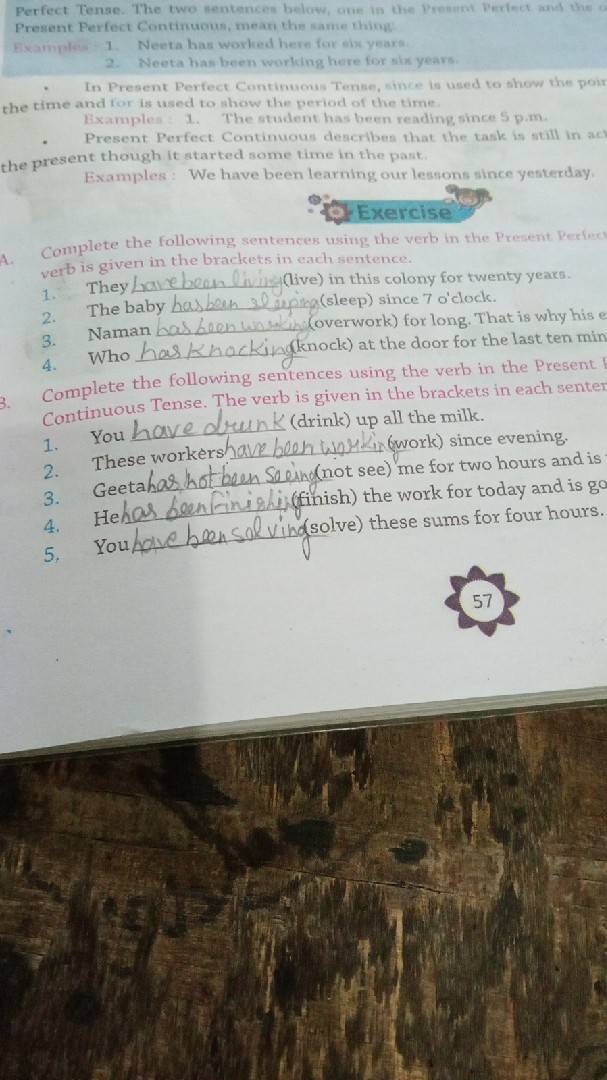 Perfect Tense. The two sentences below, one in the Present Perfect and the
Present Perfect Continuous, mean the same thing.
Examples : 1. Neeta has worked here for six years.
2. Neeta has been working here for six years.
• In Present Perfect Continuous Tense, since is used to show the poin
the time and for is used to show the period of the time.
Examples : 1. The student has been reading since 5 p.m.
• Present Perfect Continuous describes that the task is still in act
the present though it started some time in the past.
Examples : We have been learning our lessons since yesterday.
Exercise
A. Complete the following sentences using the verb in the Present Perfect
verb is given in the brackets in each sentence.
1. They have been living (live) in this colony for twenty years.
2. The baby has been sleeping (sleep) since 7 o'clock.
3. Naman has been working (overwork) for long. That is why his e
4. Who has knocking (knock) at the door for the last ten min
B. Complete the following sentences using the verb in the Present
Continuous Tense. The verb is given in the brackets in each senten
1. You have drunk (drink) up all the milk.
2. These workers have been working (work) since evening.
3. Geeta has not been seeing (not see) me for two hours and is
4. He has been finishing (finish) the work for today and is go
5. You have been solving (solve) these sums for four hours.
57